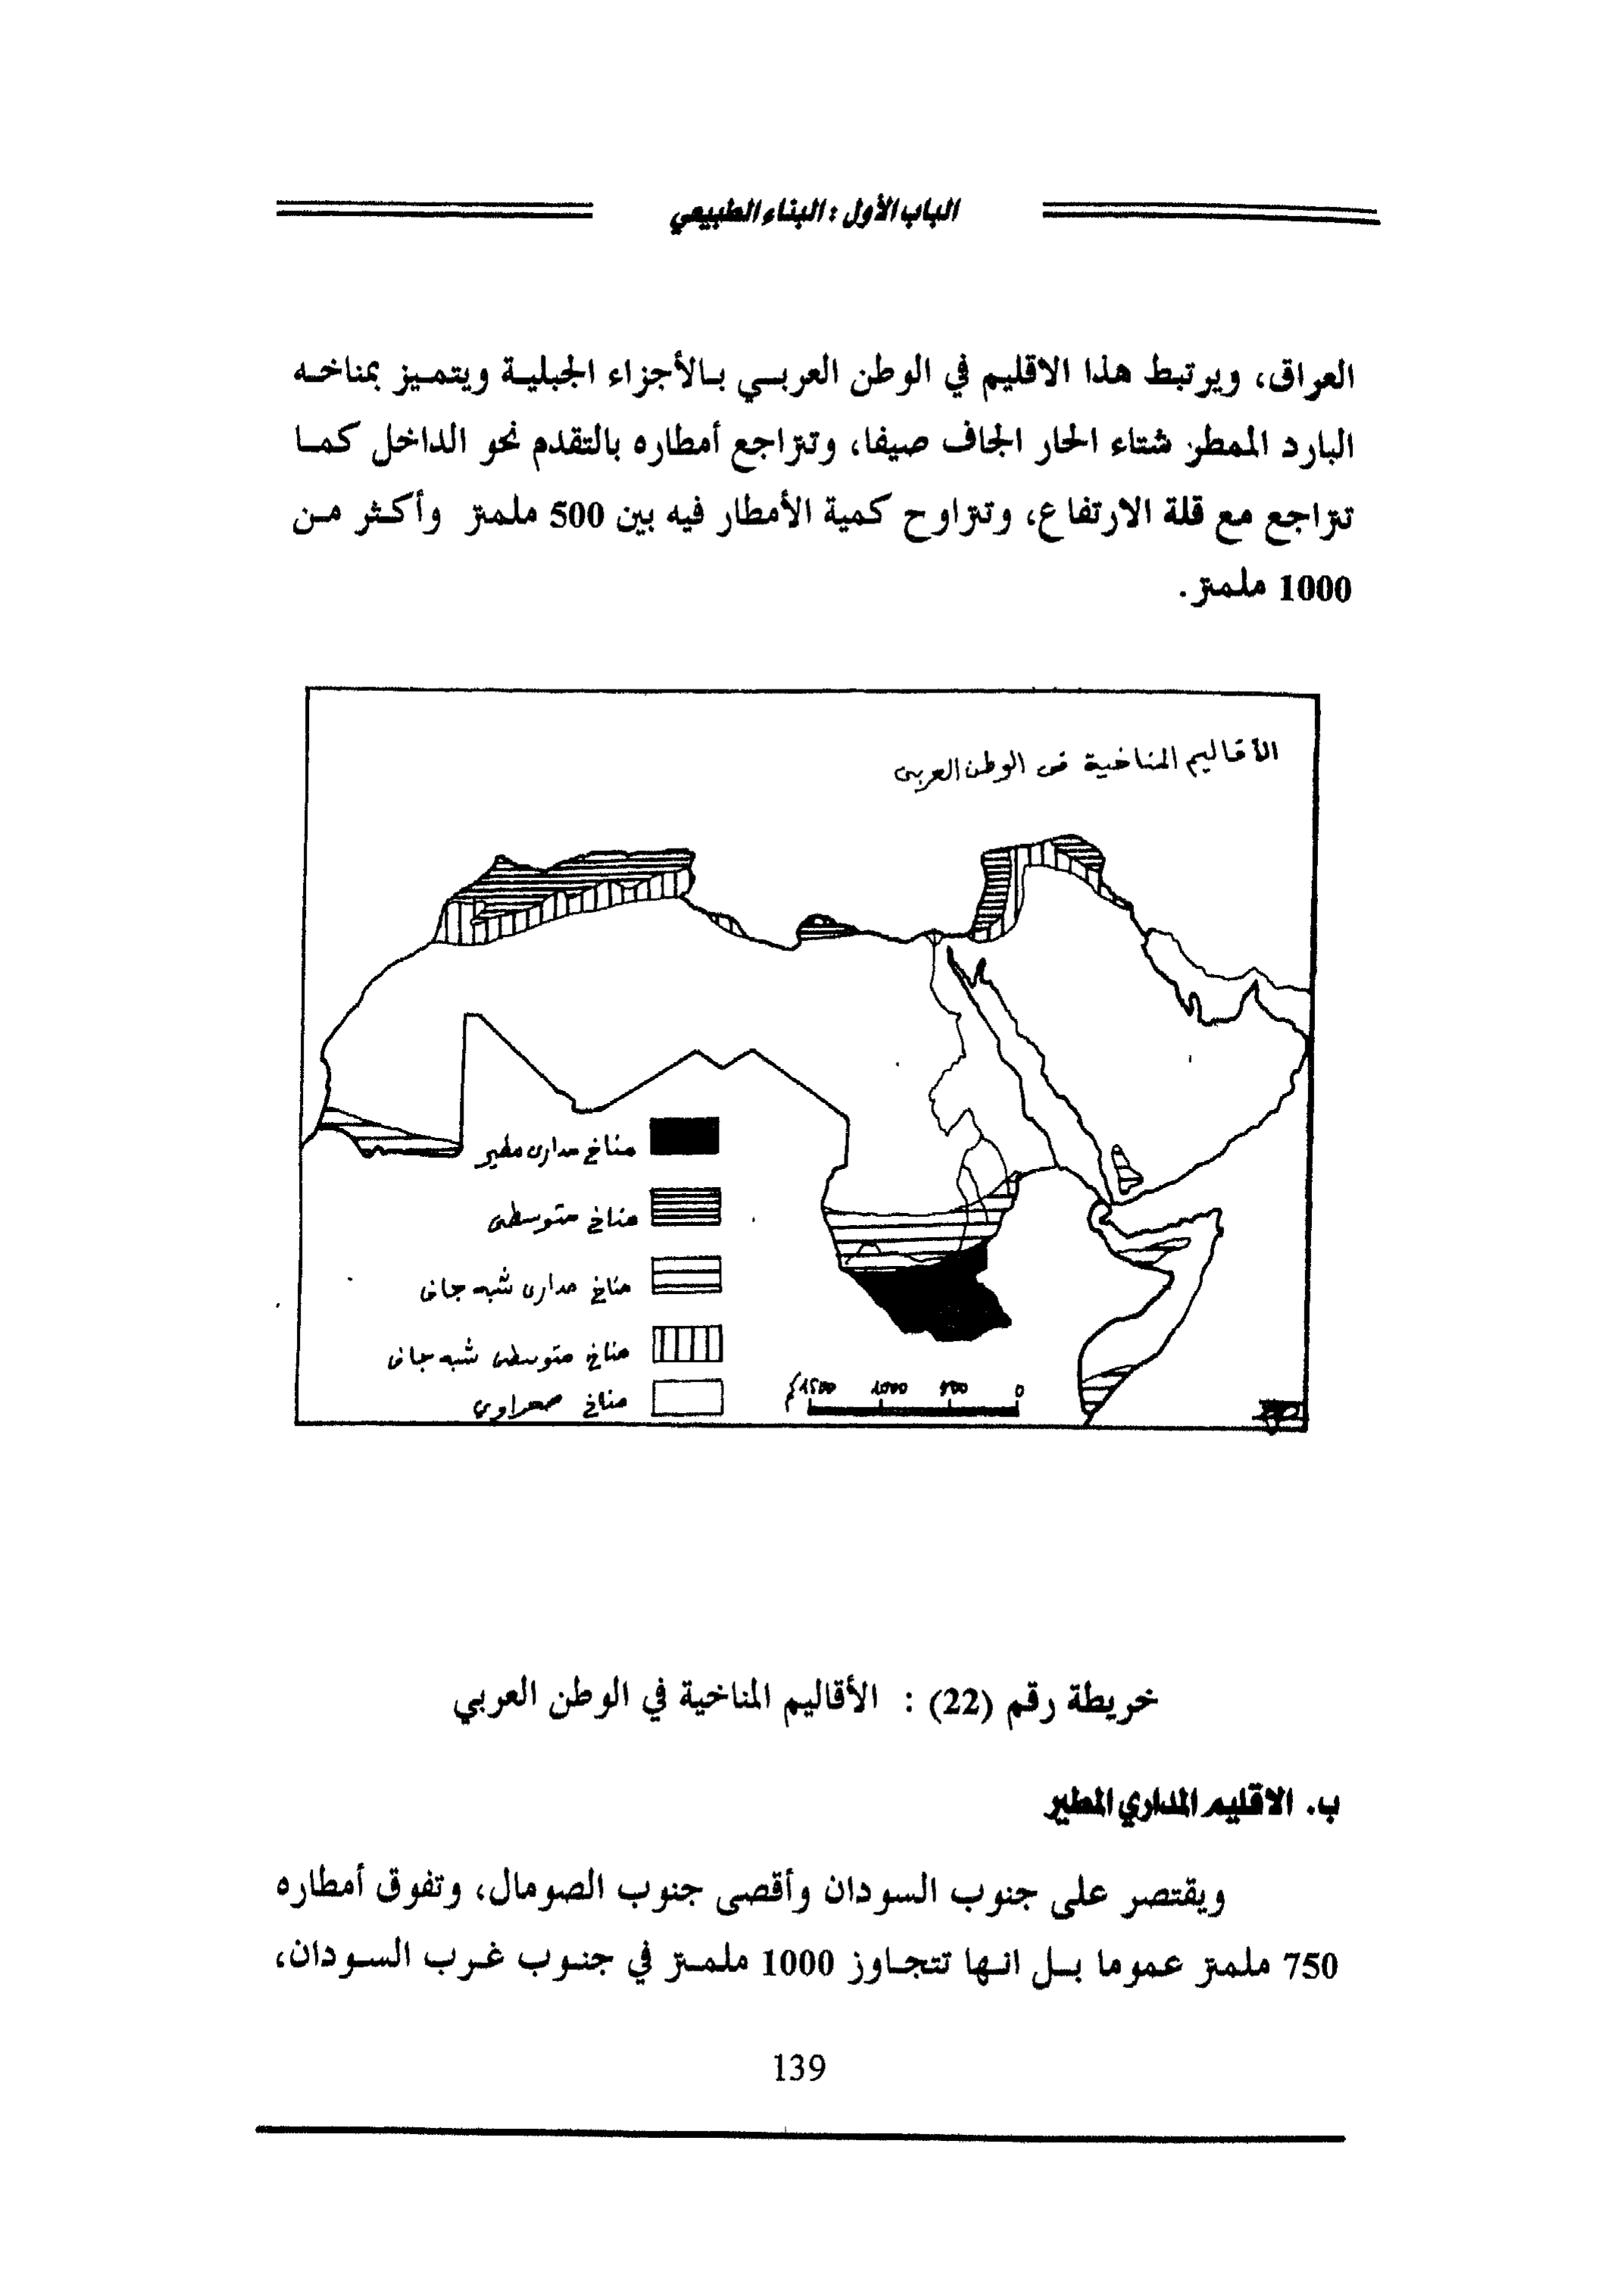 الباب الأول : البناء الطبيعي
العراق، ويرتبط هذا الاقليم في الوطن العربي بالأجزاء الجبلية ويتميز بمناخه
البارد الممطر شتاء الحار الجاف صيفا، وتتراجع أمطاره بالتقدم نحو الداخل كما
تتراجع مع قلة الارتفاع، وتتراوح كمية الأمطار فيه بين 500 ملمتر وأكثر من
1000 ملمتر.
الأقاليم المناخية في الوطن العربي
مناخ مداري مطير
مناخ متوسطي
مناخ مداري شبه جاف
مناخ متوسطي شبه جاف
مناخ صحراوي
0 500 1000 1500 كم
خريطة رقم (22) : الأقاليم المناخية في الوطن العربي
ب. الاقليم المداري المطير
ويقتصر على جنوب السودان وأقصى جنوب الصومال، وتفوق أمطاره
750 ملمتر عموما بل انها تتجاوز 1000 ملمتر في جنوب غرب السودان،
139